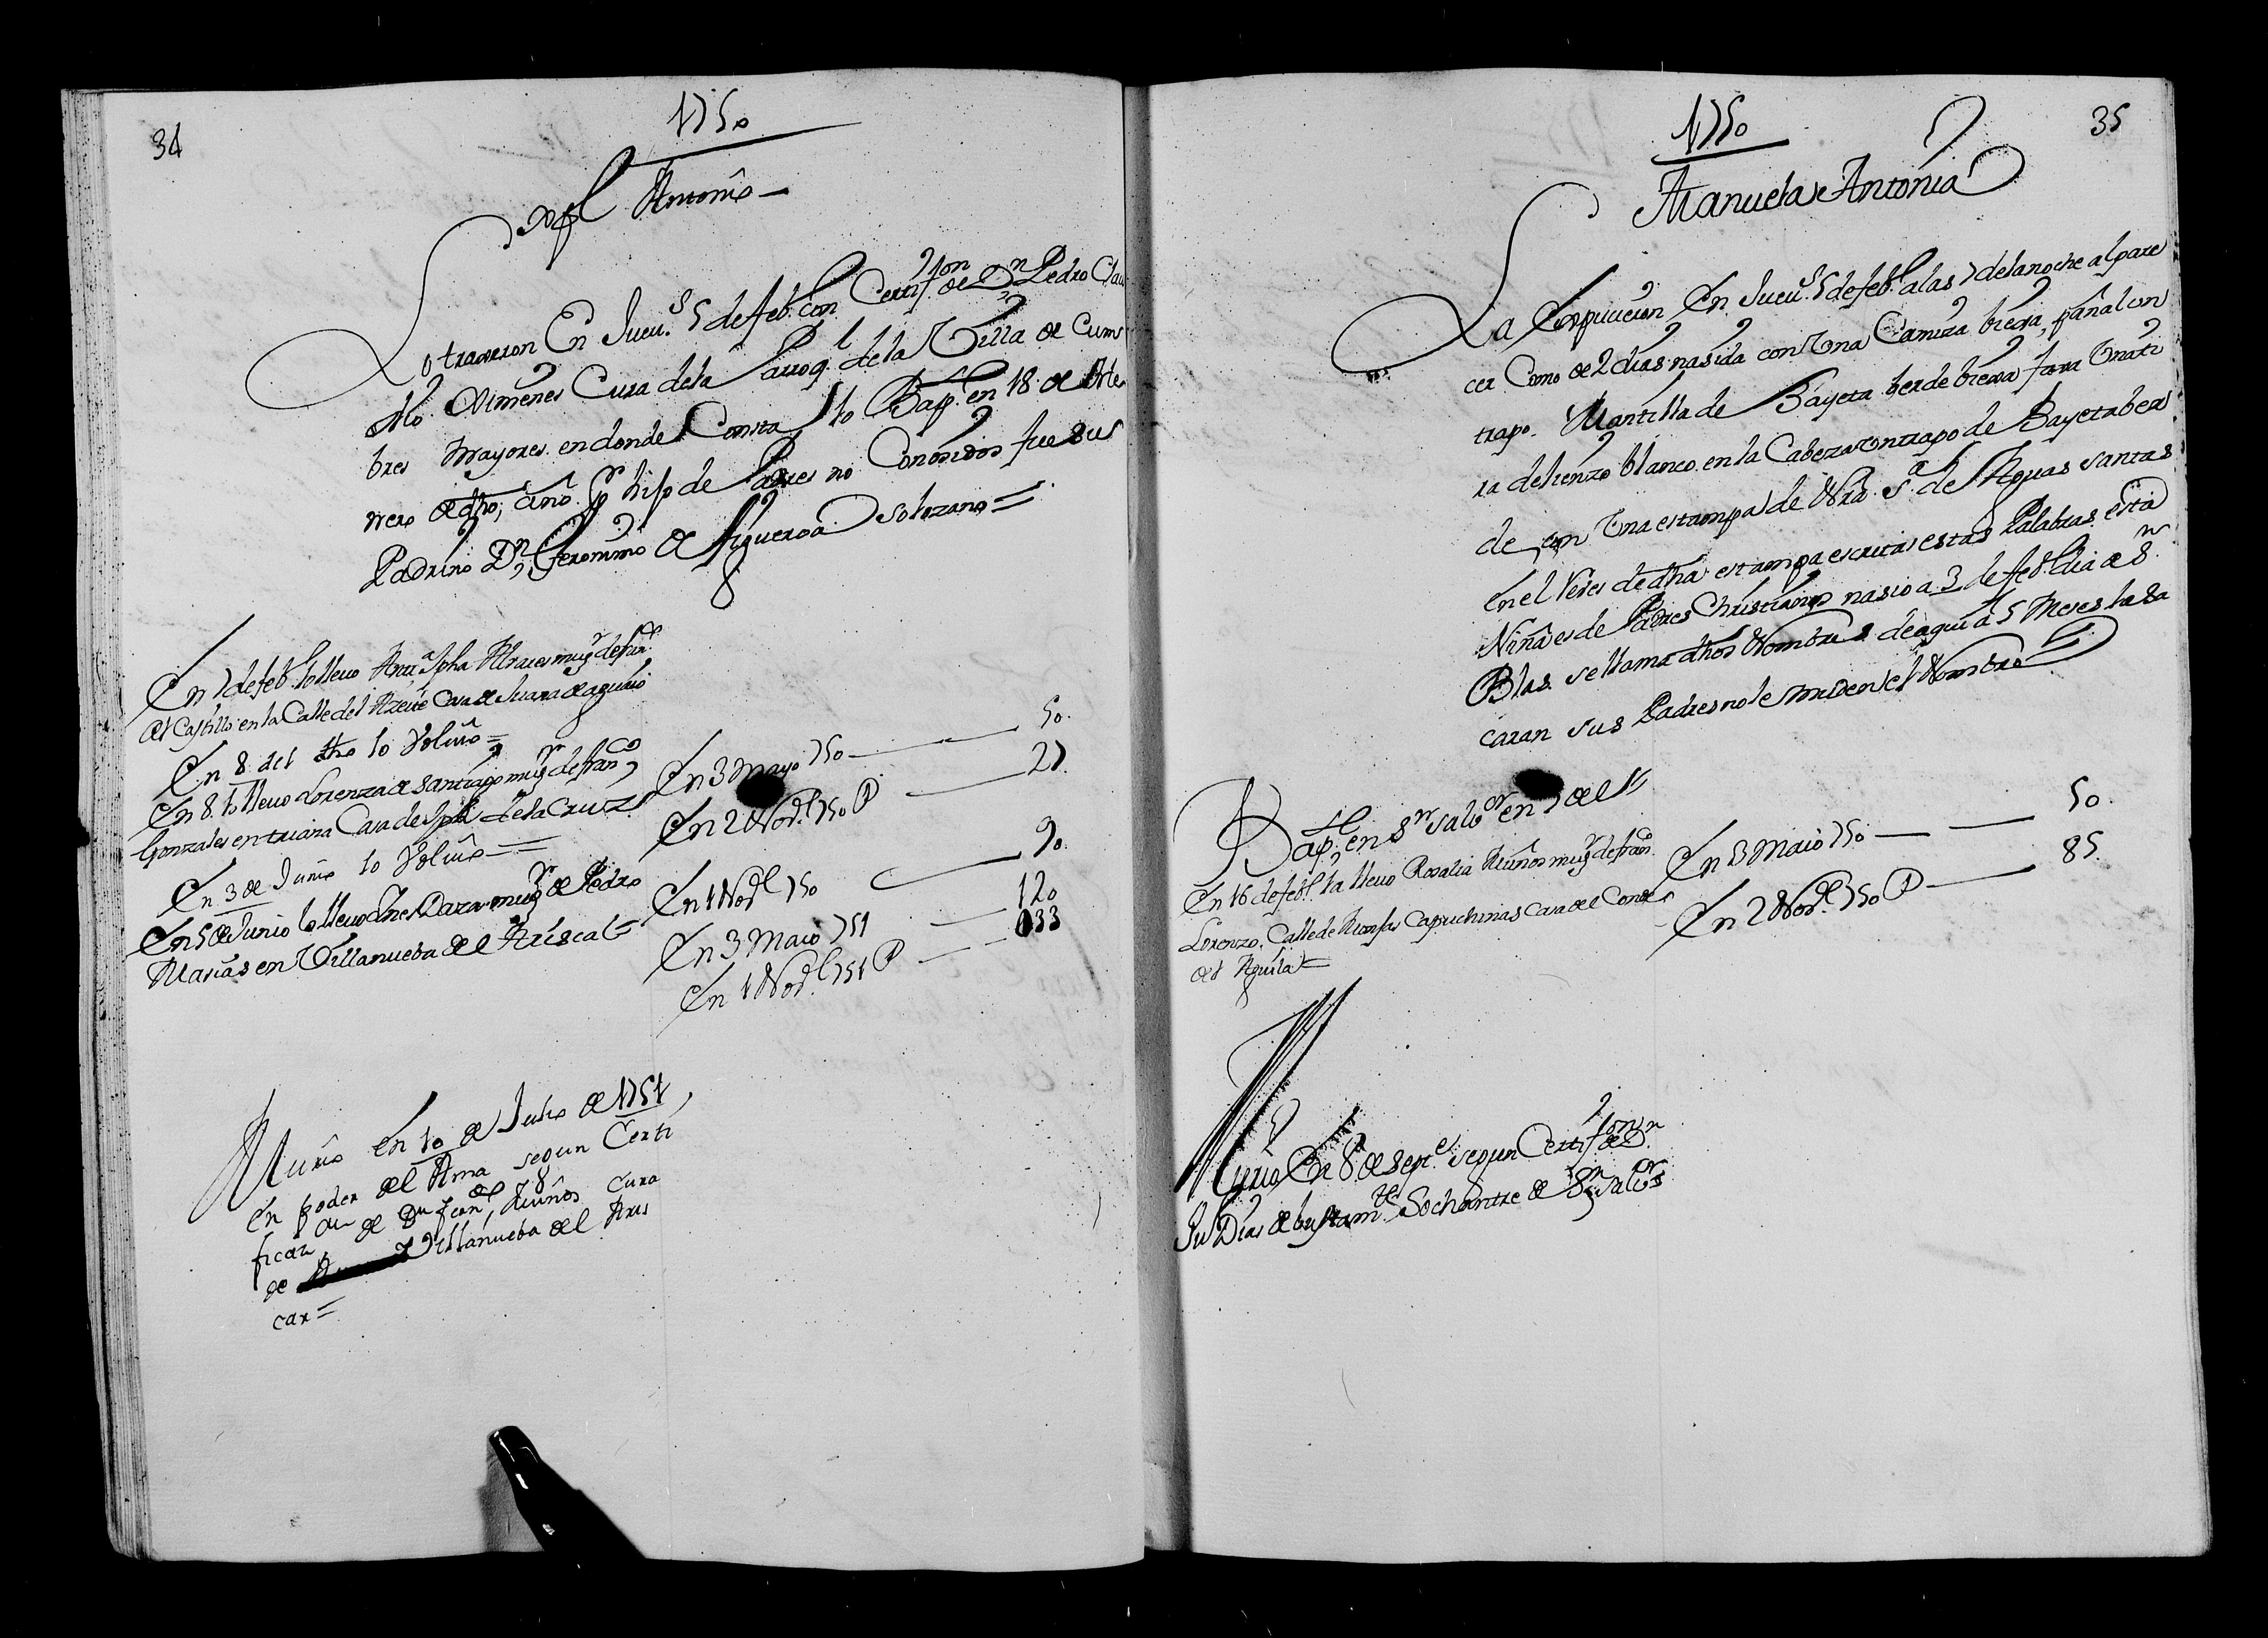 34
1750
Antonio
Lo trageron En Jueu.s 5 de feb.o con Certif.on de D.n Pedro
Ximenes Cura dela Parroq.l de la Villa de Cum
bres Mayores en donde Consta lo Bap. en 18 de
nero de dho, año. Pr hijo de Padres no Conosidos fue sus
Padrino D.n Geronimo de Figueroa Solozano =
En 7 de feb. lo lleuo
del Castillo en la Calle del Azeite Casa de Juana de
En 8 del dho lo Voluio =
En 8. lo lleuo Lorenza de Santiago mug.r de fran.co
Gonzales en triana Casa de la Cruz
En 3 de Junio lo Voluio =
En 5 de Junio lo lleuo Ines Daza mug.r de Pedro
Masias en Villanueba del Ariscal
En 3 Mayo 750 50.
En 2 Nov.e 750 P 27.
En 1 Nov.e 750 90.
En 3 Maio 751 120
En 1 Nov.e 751 P 033
Murio en 10 de Julio de 1751,
en poder del Ama segun Certi
ficaz.on de D.n fran.co Nuños Cura
de Villanueba del Aris
car =
35
1750
Manuela Antonia
La Expucieron En Jueu.s 5 de feb.o a las 7 de la noche al pare
cer Como de 2 dias nasida con Vna Camiza bieja, pañal un
trapo. Mantilla de Bayeta berde bieja faxa Vna ti
ra de lienzo blanco en la Cabeza Vn trapo de Bayeta ber
de, con Vna estampa de Nra. S.a de Aguas Santas
En el Reves de dha estampa escritas estas Palabras. esta
Niña es de Padres Christianos nasio a 3 de feb.o dia de S.n
Blas. se llama dhos Nombres de aqui a 5 Meses la sa
caran sus Padres no le muden el Nombre
Bap. en S.n Salv.or en 7 del
En 16 de feb. la lleuo Rosalia Nuños mug.r de fran.co
Lorenzo. Calle de Monjas Capuchinas Casa del Conde
del Aguila =
En 3 Maio 750 50.
En 2 Nov.e 750 P 85.
Murio En 8 de Sept.e segun Certif.on de D.n
Ju.o Dias de bustam.te Sochantre de S.n Salv.or